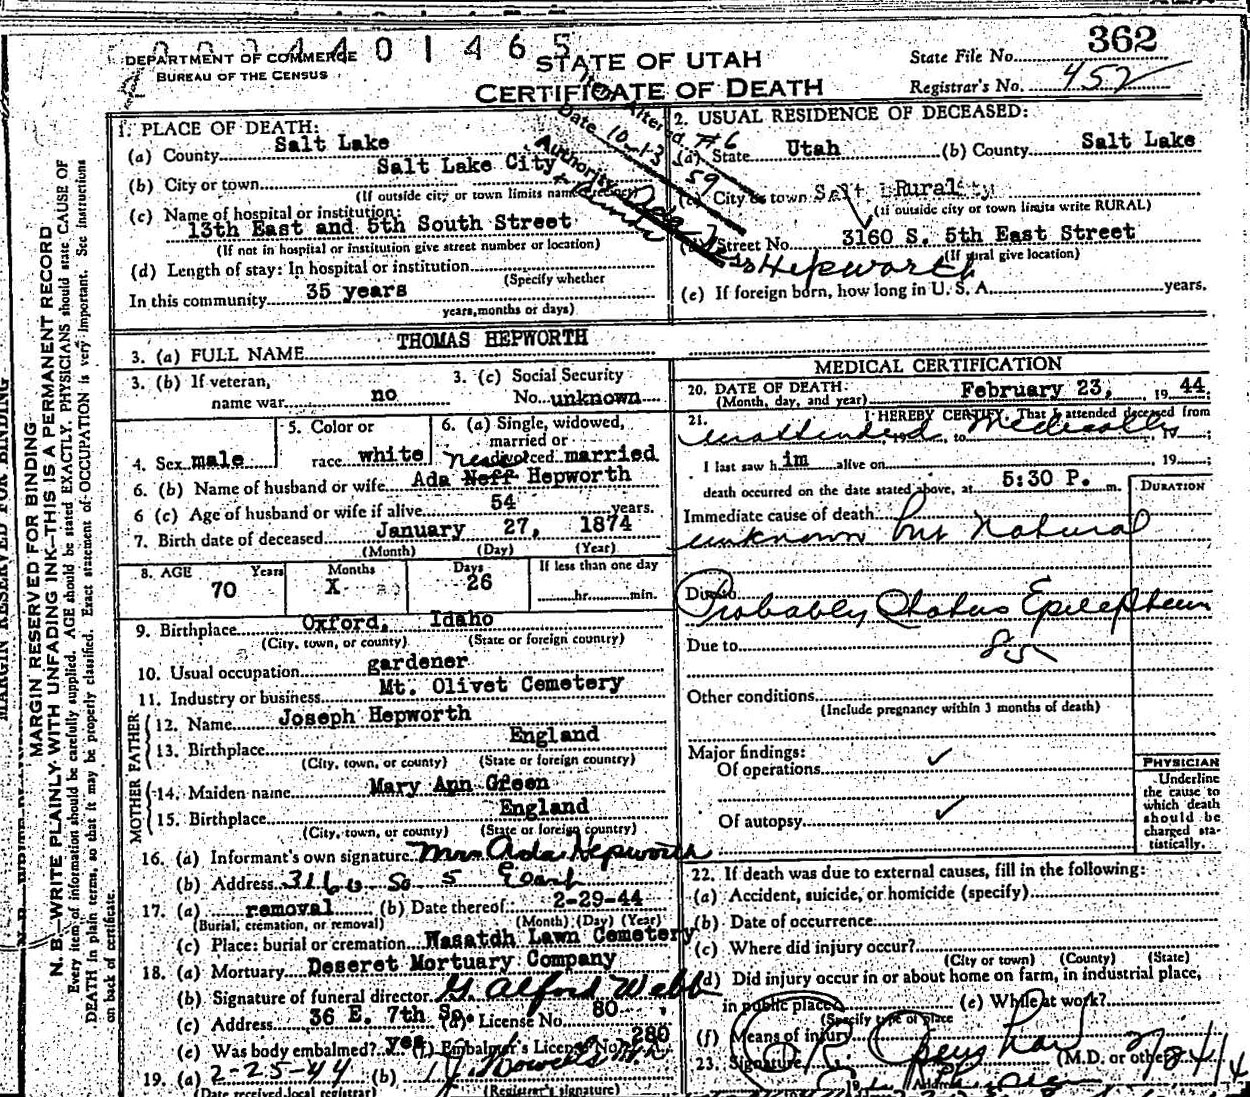 0004401465
DEPARTMENT OF COMMERCE
BUREAU OF THE CENSUS
STATE OF UTAH
CERTIFICATE OF DEATH
State File No. 362
Registrar's No. 452
Item Altered #6
Date 10-13 59
Authority
Hepworth
MARGIN RESERVED FOR BINDING
N. B.—WRITE PLAINLY WITH UNFADING INK—THIS IS A PERMANENT RECORD
Every item of information should be carefully supplied. AGE should be stated EXACTLY. PHYSICIANS should state CAUSE OF
DEATH in plain terms, so that it may be properly classified. Exact statement of OCCUPATION is very important. See instructions
on back of certificate.
1. PLACE OF DEATH:
(a) County Salt Lake
(b) City or town Salt Lake City
(If outside city or town limits name precinct)
(c) Name of hospital or institution:
13th East and 5th South Street
(If not in hospital or institution give street number or location)
(d) Length of stay: In hospital or institution
(Specify whether
In this community 35 years
years, months or days)
2. USUAL RESIDENCE OF DECEASED:
(a) State Utah (b) County Salt Lake
(c) City or town Rural
(if outside city or town limits write RURAL)
(d) Street No. 3160 S. 5th East Street
(If rural give location)
(e) If foreign born, how long in U. S. A. years.
3. (a) FULL NAME THOMAS HEPWORTH
3. (b) If veteran,
name war no
3. (c) Social Security
No. unknown
4. Sex male
5. Color or
race white
6. (a) Single, widowed,
married or
divorced married
6. (b) Name of husband or wife Ada Neff Hepworth
6 (c) Age of husband or wife if alive 54 years.
7. Birth date of deceased January 27, 1874
(Month) (Day) (Year)
8. AGE 70 Years
Months X
Days 26
If less than one day
hr. min.
9. Birthplace Oxford, Idaho
(City, town, or county) (State or foreign country)
10. Usual occupation gardener
11. Industry or business Mt. Olivet Cemetery
FATHER
12. Name Joseph Hepworth
13. Birthplace England
(City, town, or county) (State or foreign country)
MOTHER
14. Maiden name Mary Ann Green
15. Birthplace England
(City, town, or county) (State or foreign country)
16. (a) Informant's own signature Mrs Ada Hepworth
(b) Address 3160 So 5 East
17. (a) removal (b) Date thereof 2-29-44
(Burial, cremation, or removal) (Month) (Day) (Year)
(c) Place: burial or cremation Wasatdh Lawn Cemetery
18. (a) Mortuary Deseret Mortuary Company
(b) Signature of funeral director G. Alford Webb
(c) Address 36 E. 7th So. (d) License No. 80
(e) Was body embalmed? yes (f) Embalmer's License No. 280
19. (a) 2-25-44 (b)
(Date received local registrar) (Registrar's signature)
MEDICAL CERTIFICATION
20. DATE OF DEATH: February 23, 1944
(Month, day, and year)
21. I HEREBY CERTIFY, That I attended deceased from
unattended, to Medically, 19 ;
I last saw him alive on 19 ;
death occurred on the date stated above, at 5:30 P. m.
DURATION
Immediate cause of death
unknown but Natural
Due to
Probably Status Epilepticus
Due to 85
Other conditions
(Include pregnancy within 3 months of death)
Major findings:
Of operations ✓
Of autopsy ✓
PHYSICIAN
Underline
the cause to
which death
should be
charged sta-
tistically.
22. If death was due to external causes, fill in the following:
(a) Accident, suicide, or homicide (specify)
(b) Date of occurrence
(c) Where did injury occur?
(City or town) (County) (State)
(d) Did injury occur in or about home on farm, in industrial place,
in public place? (e) While at work?
(Specify type of place
(f) Means of injury
23. Signature (M.D. or other)
Address